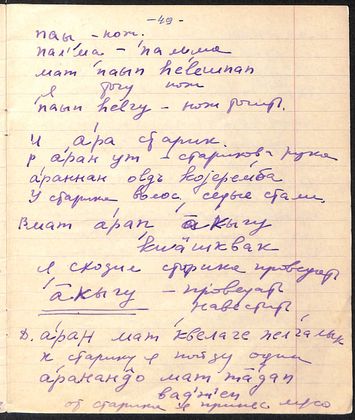 -49-
паы - нож.
пал'i'ма - п'альма
мат п'аып пе́вешпап
я точу нож
п'аып пе́вгу - нож точить.
И а́ра старик.
Р а́ран ут - старикова рука
а́раннан овдъ kоjере́мба
У старика волос, серые стали.
Вмат а́рап а̄́кыгу
kwа́шквак
Я сходил старика проведать
а̄́кыгу - проведать
навестить
Д. а́ран мат квелаге пелга́лык
к старику я пойду один
а́ранандо мат та́дап
вадж'еп
от старика я принес мясо